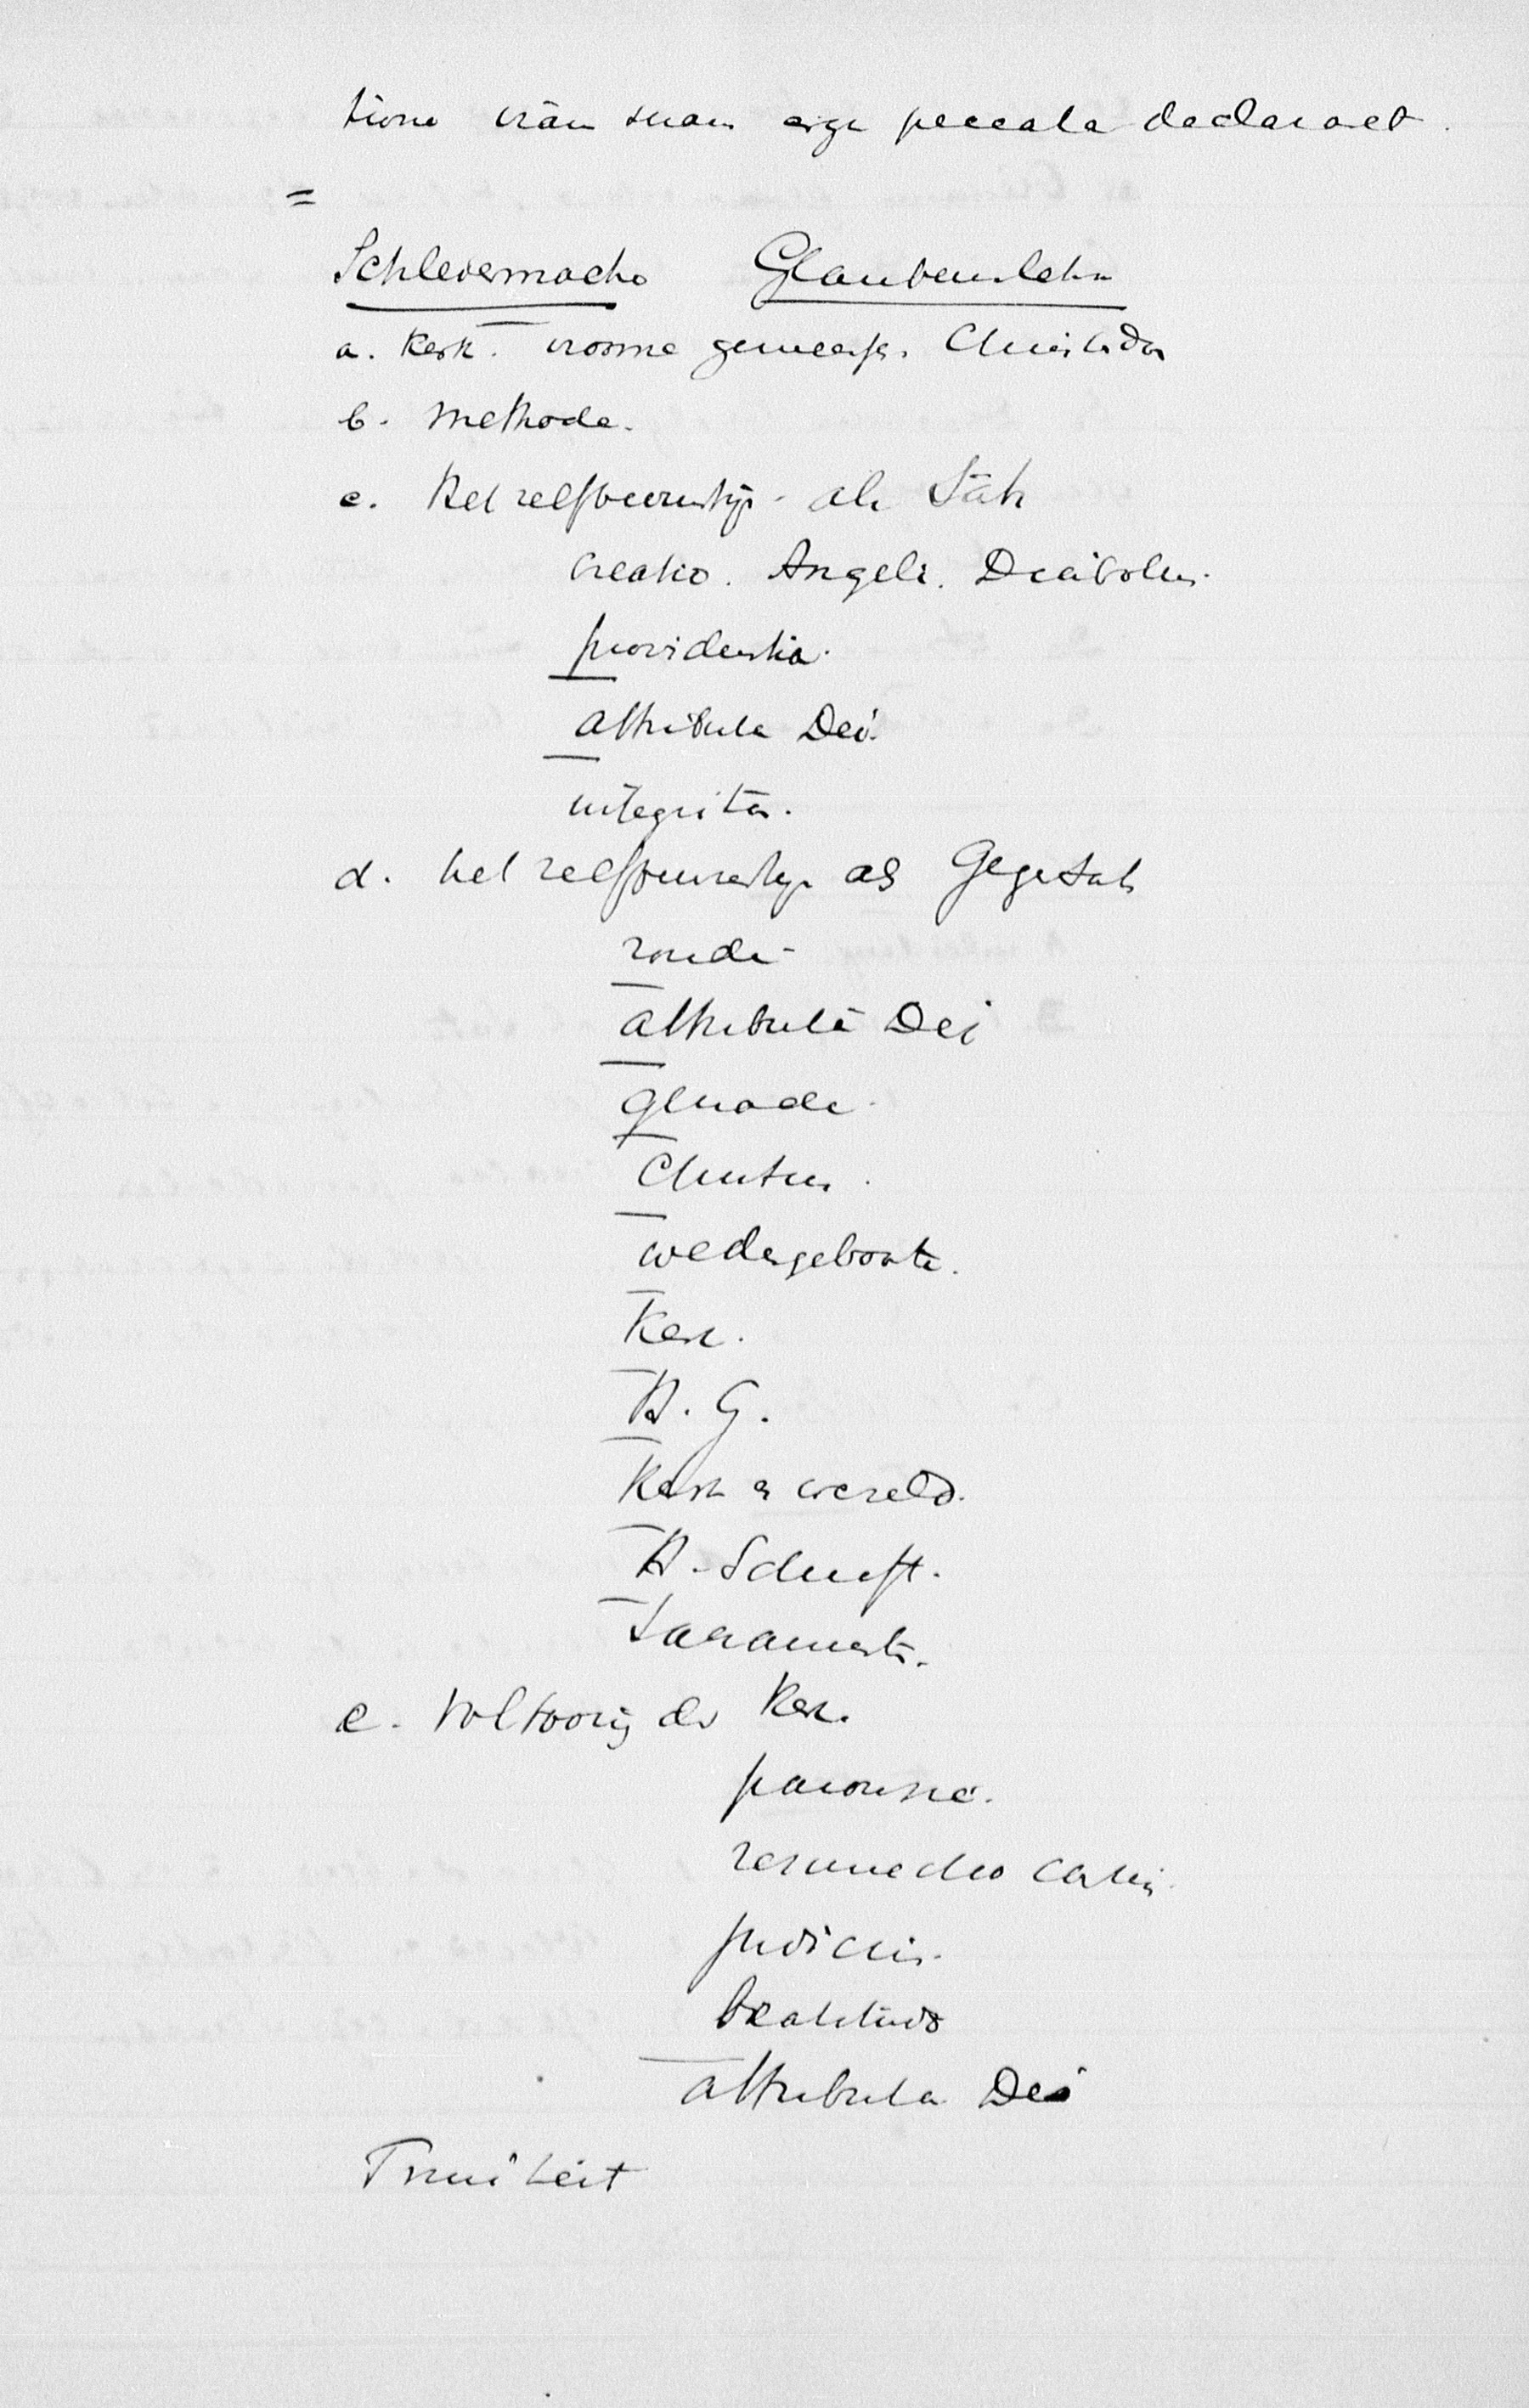 tione irām suam erga peccata declararet.
=
Schleiermacher Glaubenslehre
a. Kerk. vrome gemeensch. Christendom
b. methode.
c. Het zelfbewustzijn als Sätze
creatio. Angeli. Diabolus.
providentia.
attributa Dei.
integritas.
d. het zelfbewustzijn als Gegensatz
zonde
attributa Dei
genade.
Christus.
wedergeboorte.
Kerk.
H. G.
Kerk en wereld.
H. Schrift.
Sacramenten.
e. Voltooiing der Kerk.
parousie.
resurrectio carnis.
judicium.
beatitudo
attributa Dei
Triniteit